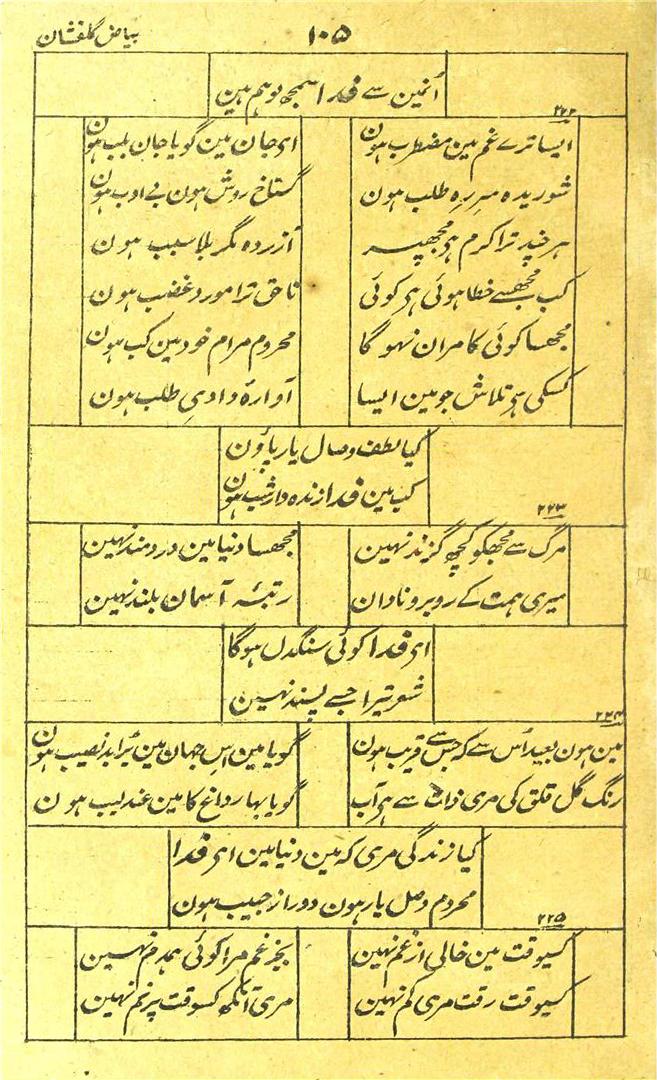 بیاض گلفشان
۱۰۵
اُنھین سے فدا سمجھ لو ہم ہین
۲۲۲
ایسا ترے غم مین مضطرب ہون
ای جان مین گویا جان بلب ہون
شوریدہ سرِ رہِ طلب ہون
گستاخ روش ہون بے ادب ہون
ہر چند ترا کرم ہی مجھپہ
آزردہ مگر بلا سبب ہون
کب مجھسے خطا ہوئی ہی کوئی
ناحق ترا موردِ غضب ہون
مجھسا کوئی کامران نہوگا
محروم مرام خود مین کب ہون
کسکی ہی تلاش جو مین ایسا
آوارۂ وادیِ طلب ہون
کیا لطف وصال یار پاؤن
کب مین فدا زندہ دار شب ہون
۲۲۳
مرگ سے مجھکو کچھ گزند نہین
مجھسا دنیا مین دردمند نہین
میری ہمت کے روبرو نادان
رتبۂ آسمان بلند نہین
ای فدا کوئی سنگدل ہوگا
شعر تیرا جسے پسند نہین
۲۲۴
مین ہون بعید اُس سے کہ جس سے قریب ہون
گویا مین اس جہان مین بُرا بد نصیب ہون
رنگ گل قلق کی مری ذات سے ہی آب
گویا بہار داغ کا مین عندلیب ہون
کیا زندگی مری کہ مین دنیا مین ای فدا
محروم وصل یار ہون دور از حبیب ہون
۲۲۵
کسیوقت مین خالی از غم نہین
بجز غم مرا کوئی ہمدم نہین
کسیوقت رقت مری کم نہین
مری آنکھ کسوقت پرنم نہین